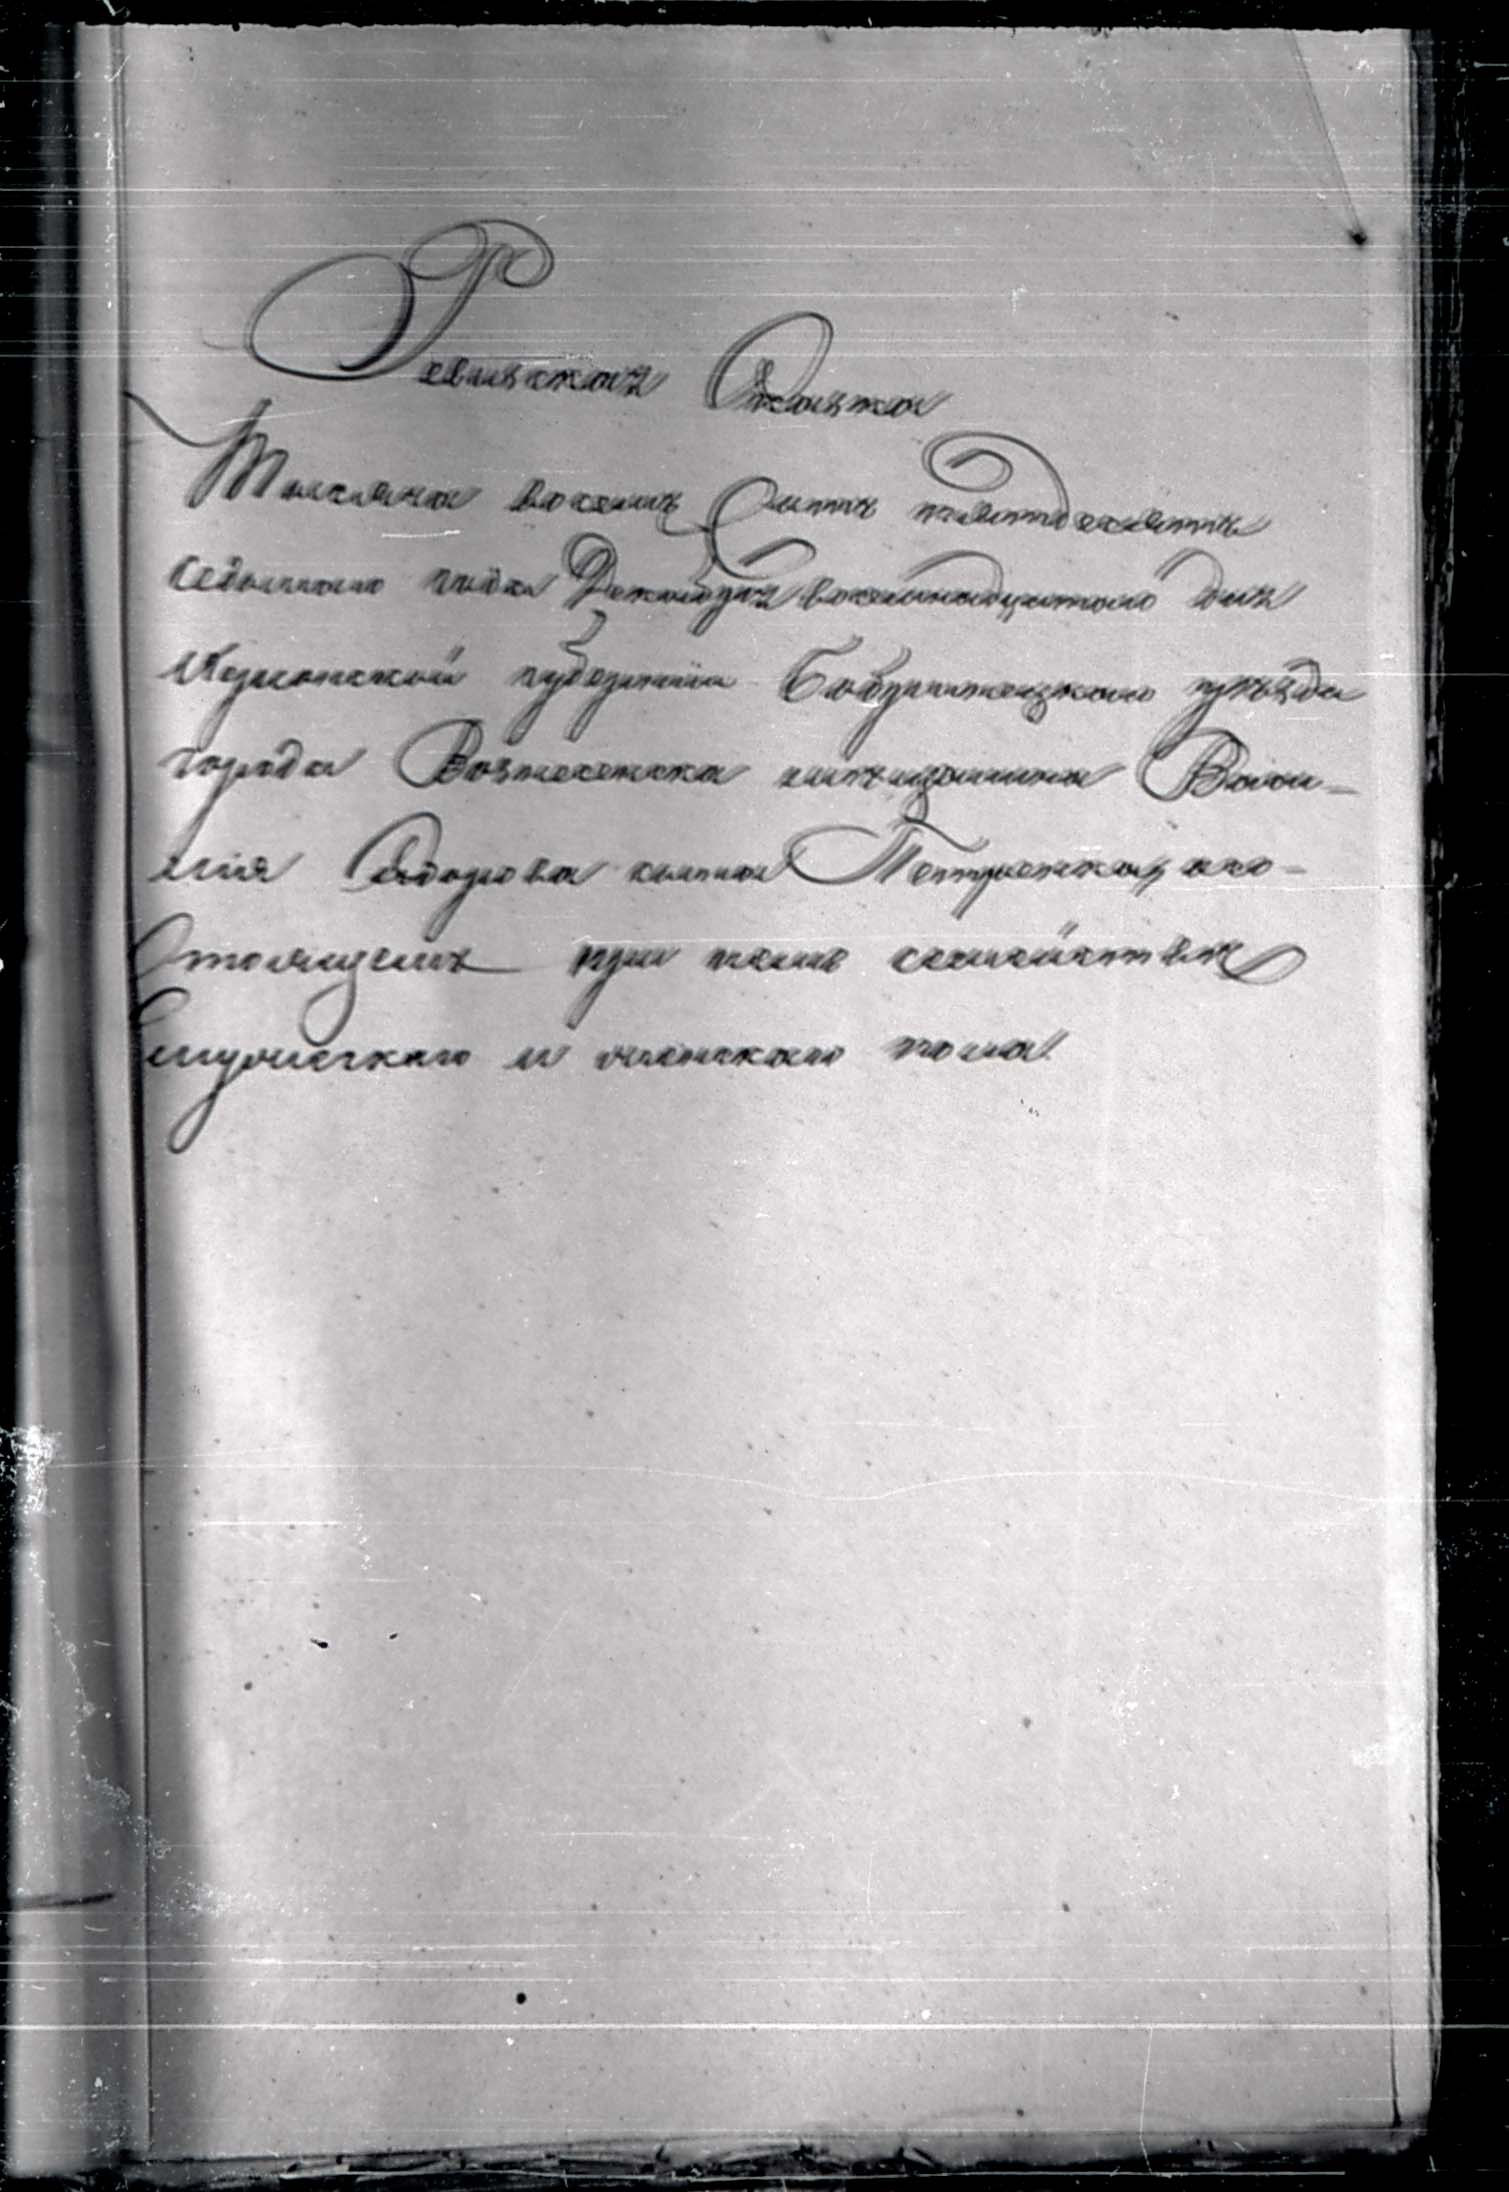 Ревизская Сказка
Тысяча восемь Сотъ пятьдесятъ
седьмого года Декабря восемнадцатого дня
Херсонской губерніи Бобринецкаго уѣзда
города Вознесенска мѣщанина Васи-
лія Ѳедорова сына Петренка, о со-
стоящемъ при немъ семействѣ
мужескаго и женскаго пола